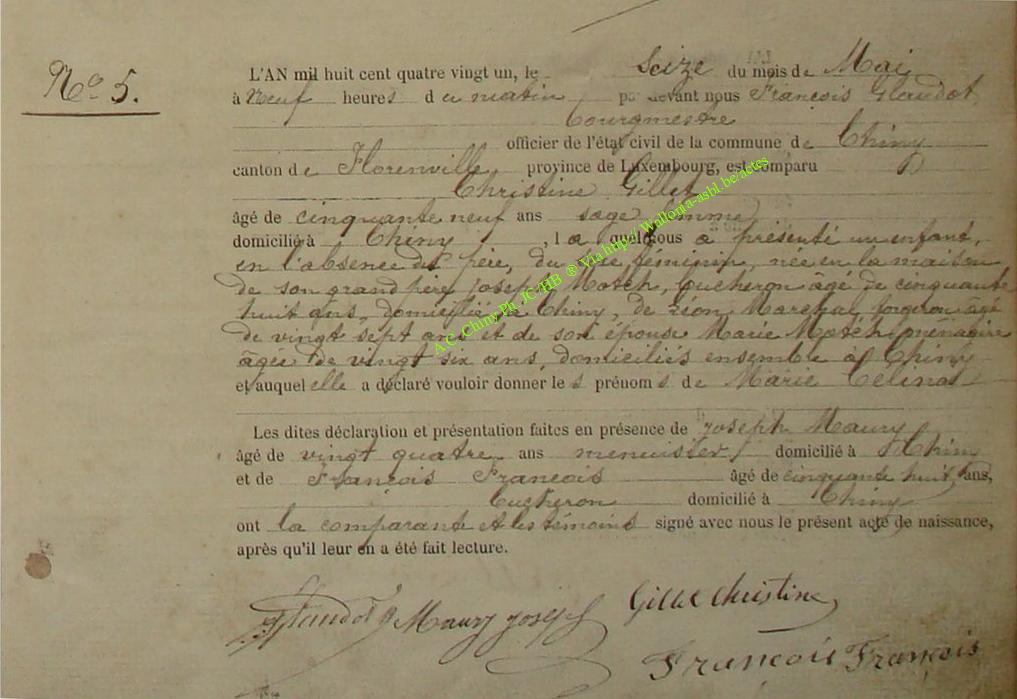 No 5.
L'AN mil huit cent quatre vingt un, le seize du mois de Mai
à Neuf heures du matin par devant nous François Glaudot
bourgmestre
officier de l'état civil de la commune de Chiny
canton de Florenville province de Luxembourg, est comparu
Christine Gillet
âgé de cinquante neuf ans sage femme
domicilié à Chiny, la quelle nous a présenté un enfant,
en l'absence du père, du sexe feminin, née en la maison
de son grand père Joseph Motch, bucheron âgé de cinquante
huit ans, domicilié à Chiny, de Léon Marchal forgeron âgé
de vingt sept ans et de son épouse Marie Motch menagère
âgée de vingt six ans, domiciliés ensemble à Chiny
et auquel elle a déclaré vouloir donner les prénoms de Marie Célina
Les dites déclaration et présentation faites en présence de Joseph Maury
âgé de vingt quatre ans menuisier domicilié à Chiny
et de François François âgé de cinquante huit ans,
bucheron domicilié à Chiny
ont la comparant et les témoins signé avec nous le présent acte de naissance,
après qu'il leur en a été fait lecture.
Glaudot Maury joseph Gillet Christine
François François
A.C. Chiny Ph. JC HB @ Via http// Wallonia-asbl.be/actes